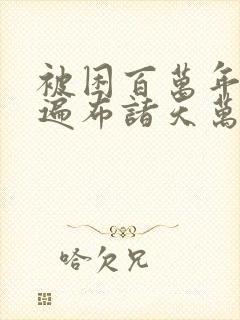 被困百萬年
遍布諸天萬
哈欠兄